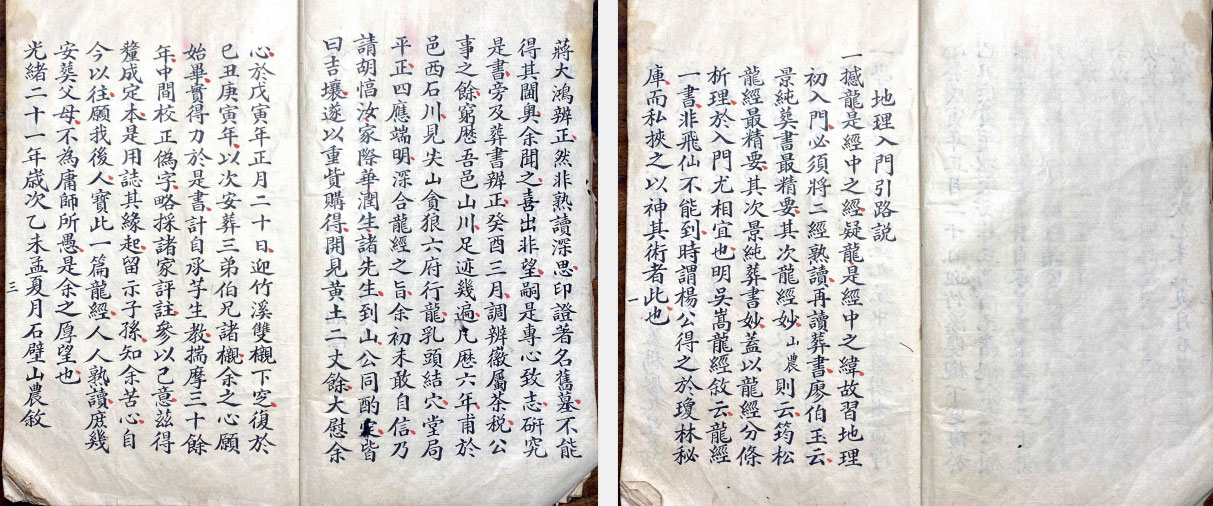 地理入門引路説
一撼龍是經中之經疑龍是經中之緯故習地理
初入門必須將二經熟讀再讀葬書廖伯玉云
景純葬書最精要其次龍經妙山農則云筠松
龍經最精要其次景純葬書妙蓋以龍經分條
析理於入門尤相宜也明吳嵩龍經敘云龍經
一書非飛仙不能到時謂楊公得之於瓊林秘
庫而私挾之以神其術者此也
一
蔣大鴻辨正然非熟讀深思印證著名舊墓不能
得其閫奧余聞之喜出非望嗣是專心致志研究
是書旁及葬書辨正癸酉三月調辦徽屬茶稅公
事之餘窮歷吾邑山川足迹幾遍凡歷六年甫於
邑西石川見尖山貪狼六府行龍乳頭結穴堂局
平正四應端明深合龍經之旨余初未敢自信乃
請胡愊汝家際華潤生諸先生到山公同酌定皆
曰吉壤遂以重貲購得開見黃土二丈餘大慰余
心於戊寅年正月二十日迎竹溪雙櫬下窆復於
己丑庚寅年以次安葬三弟伯兄諸櫬余之心願
始畢實得力於是書計自承芋生教揣摩三十餘
年中間校正偽字略採諸家評註參以己意茲得
釐成定本是用誌其緣起留示子孫知余苦心自
今以往願我後人寶此一篇龍經人人熟讀庶幾
安葬父母不為庸師所愚是余之厚望也
光緒二十一年歲次乙未孟夏月石壁山農敘
三